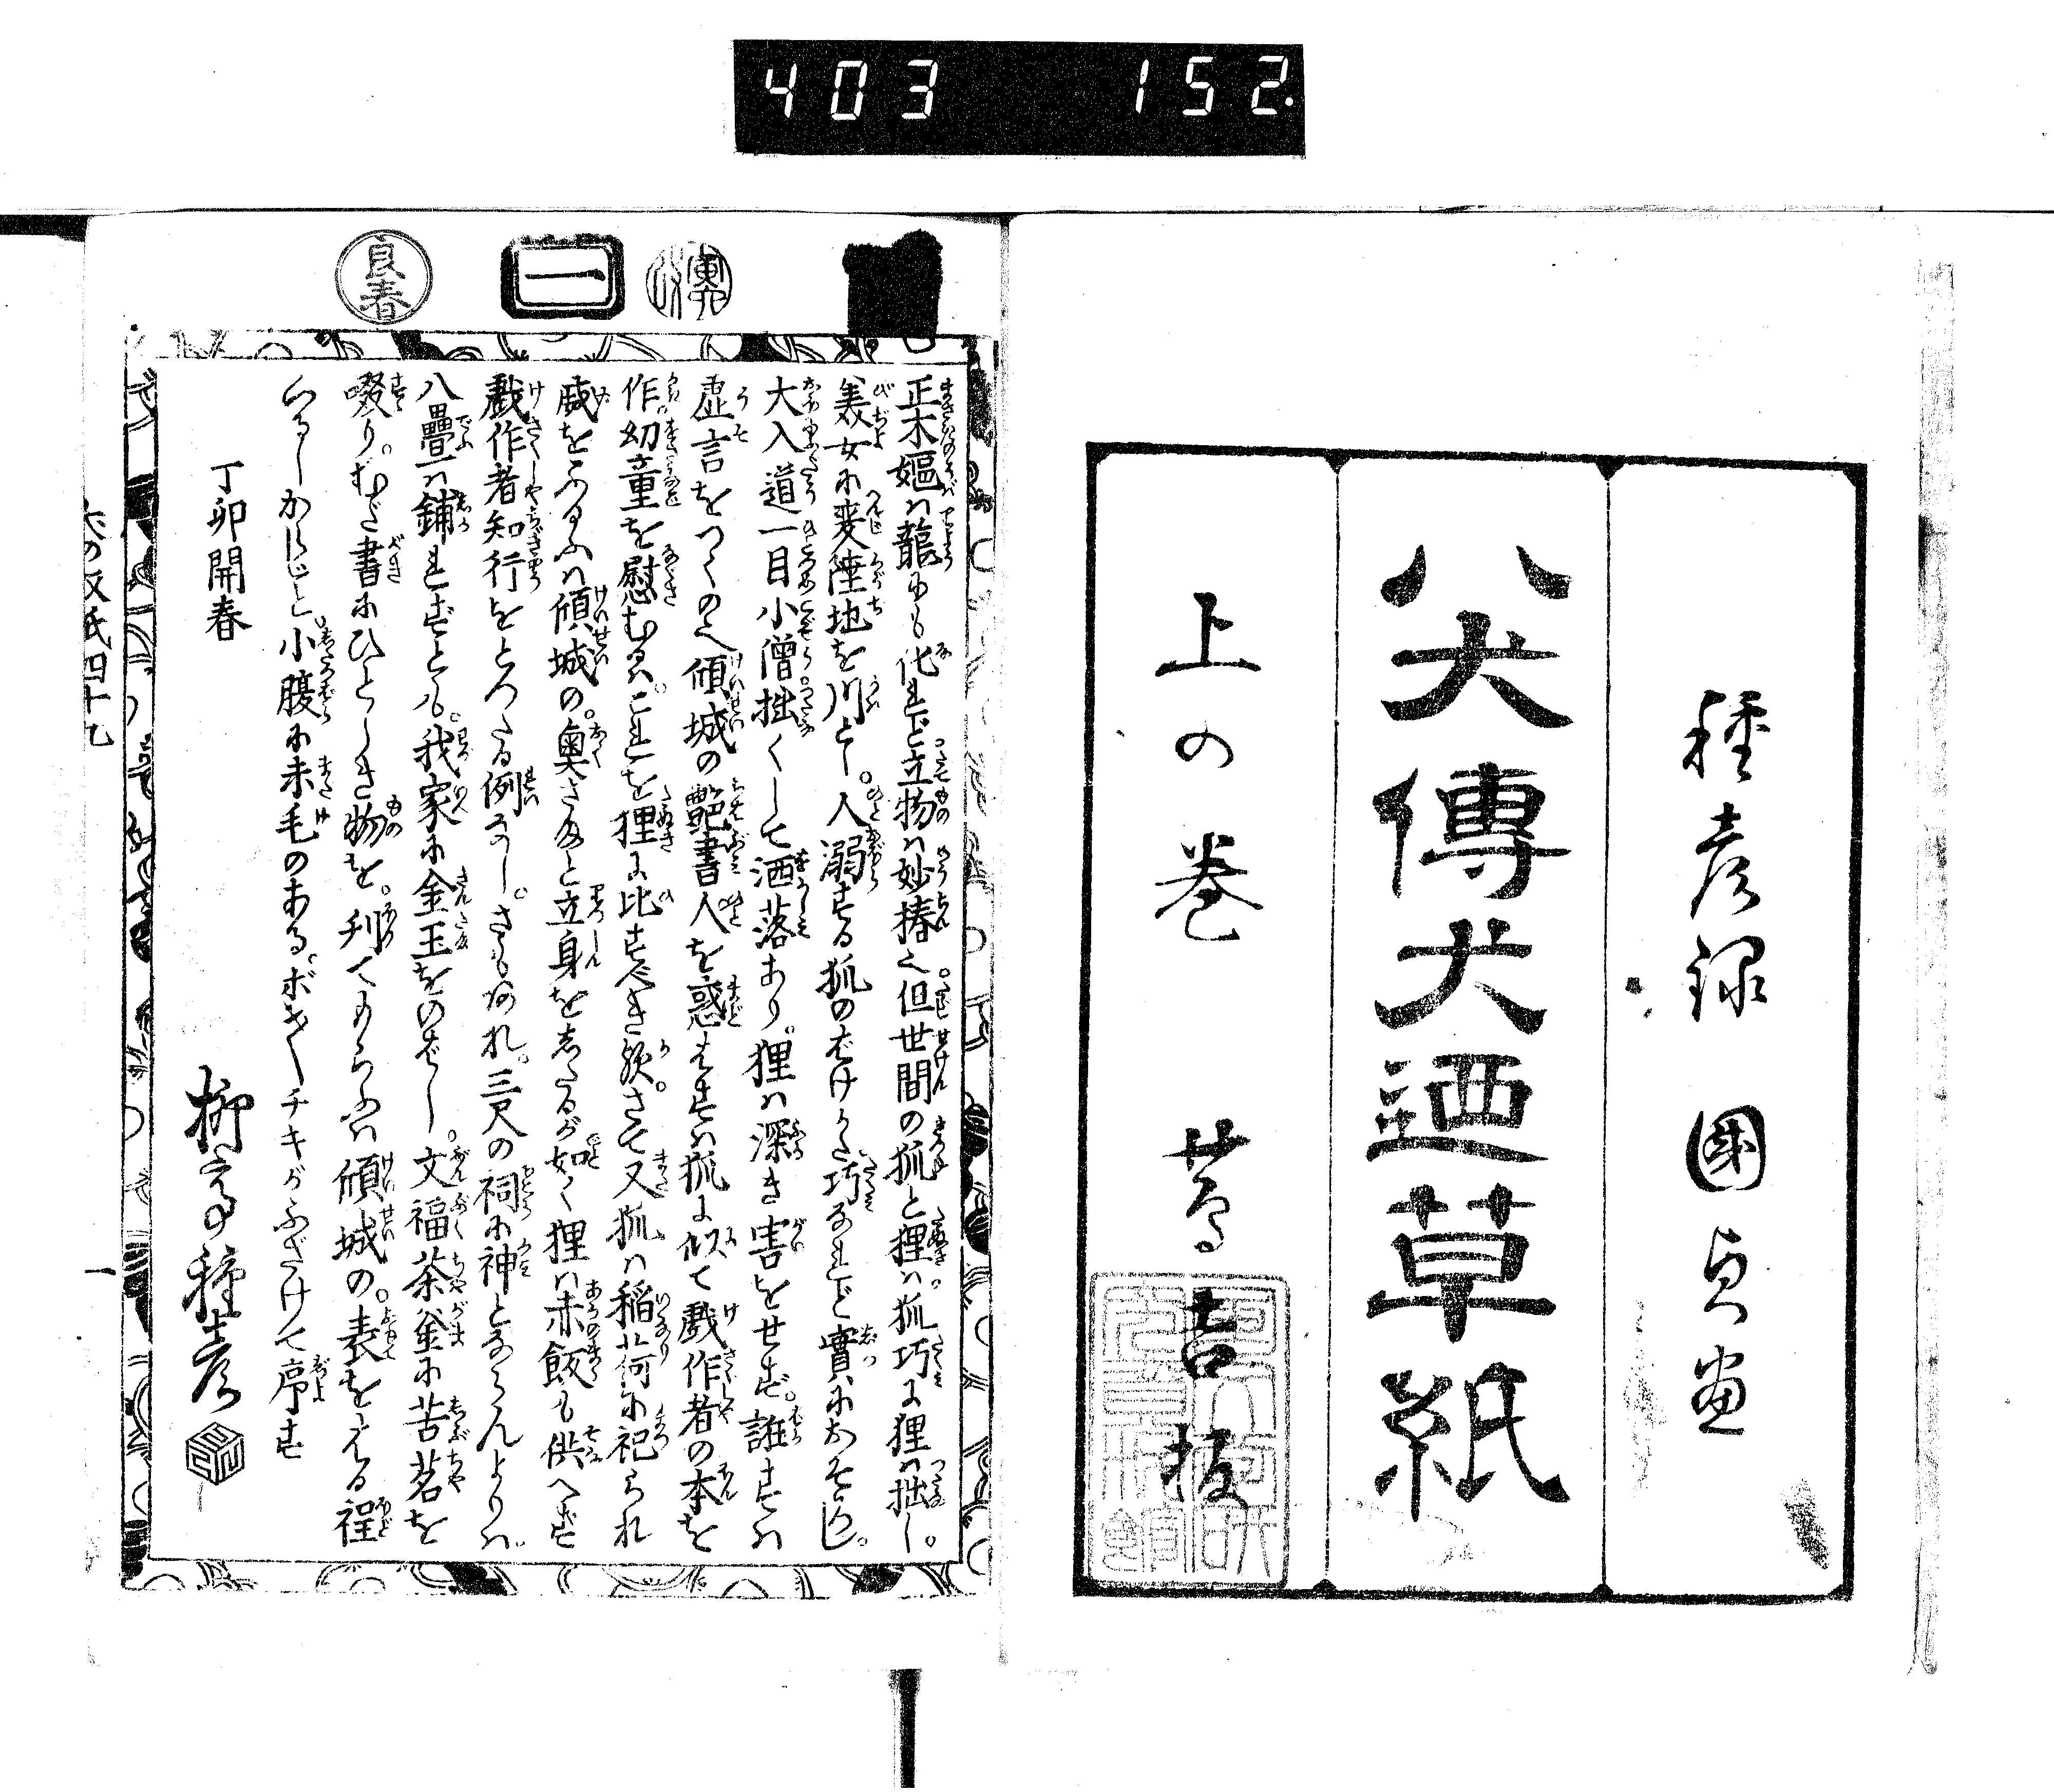 403 152.
種彦録 國貞画
八犬傳犬廼草紙
上の巻 蔦吉板
一
良春
正木嫗ハ龍にも化れど立物ハ妙椿也但世間の狐と狸ハ。狐巧に狸ハ拙し。
美女に変陸地を川とし。人溺する狐のばけかた巧なれど實におそろし。
大入道一目小僧拙くして洒落あり。狸ハ深き害をせず。誰すハ
虚言をつくのミ傾城の艶書人を惑はすハ狐に似て戯作者の本を
作。幼童を慰むるハ。これを狸に比すべき歟。さて又狐ハ稲荷に祀られ
威をふるふハ傾城の。奥さまと立身をしたるが如く狸ハ赤飯も供へず
戯作者知行をとつたる例なし。さもあれ。三尺の祠に神とならんよりハ。
八疊ハ鋪れずとも。我家に金玉をのばし。文福茶釜に苦茗を
啜り。むだ書にひとしき物を。利くもらふハ傾城の。表をえる程
いるしからじと。小腹に未毛のある。ボキ〱チキがふざけて序す
丁卯開春
柳亭種彦
犬の双紙四十九
一